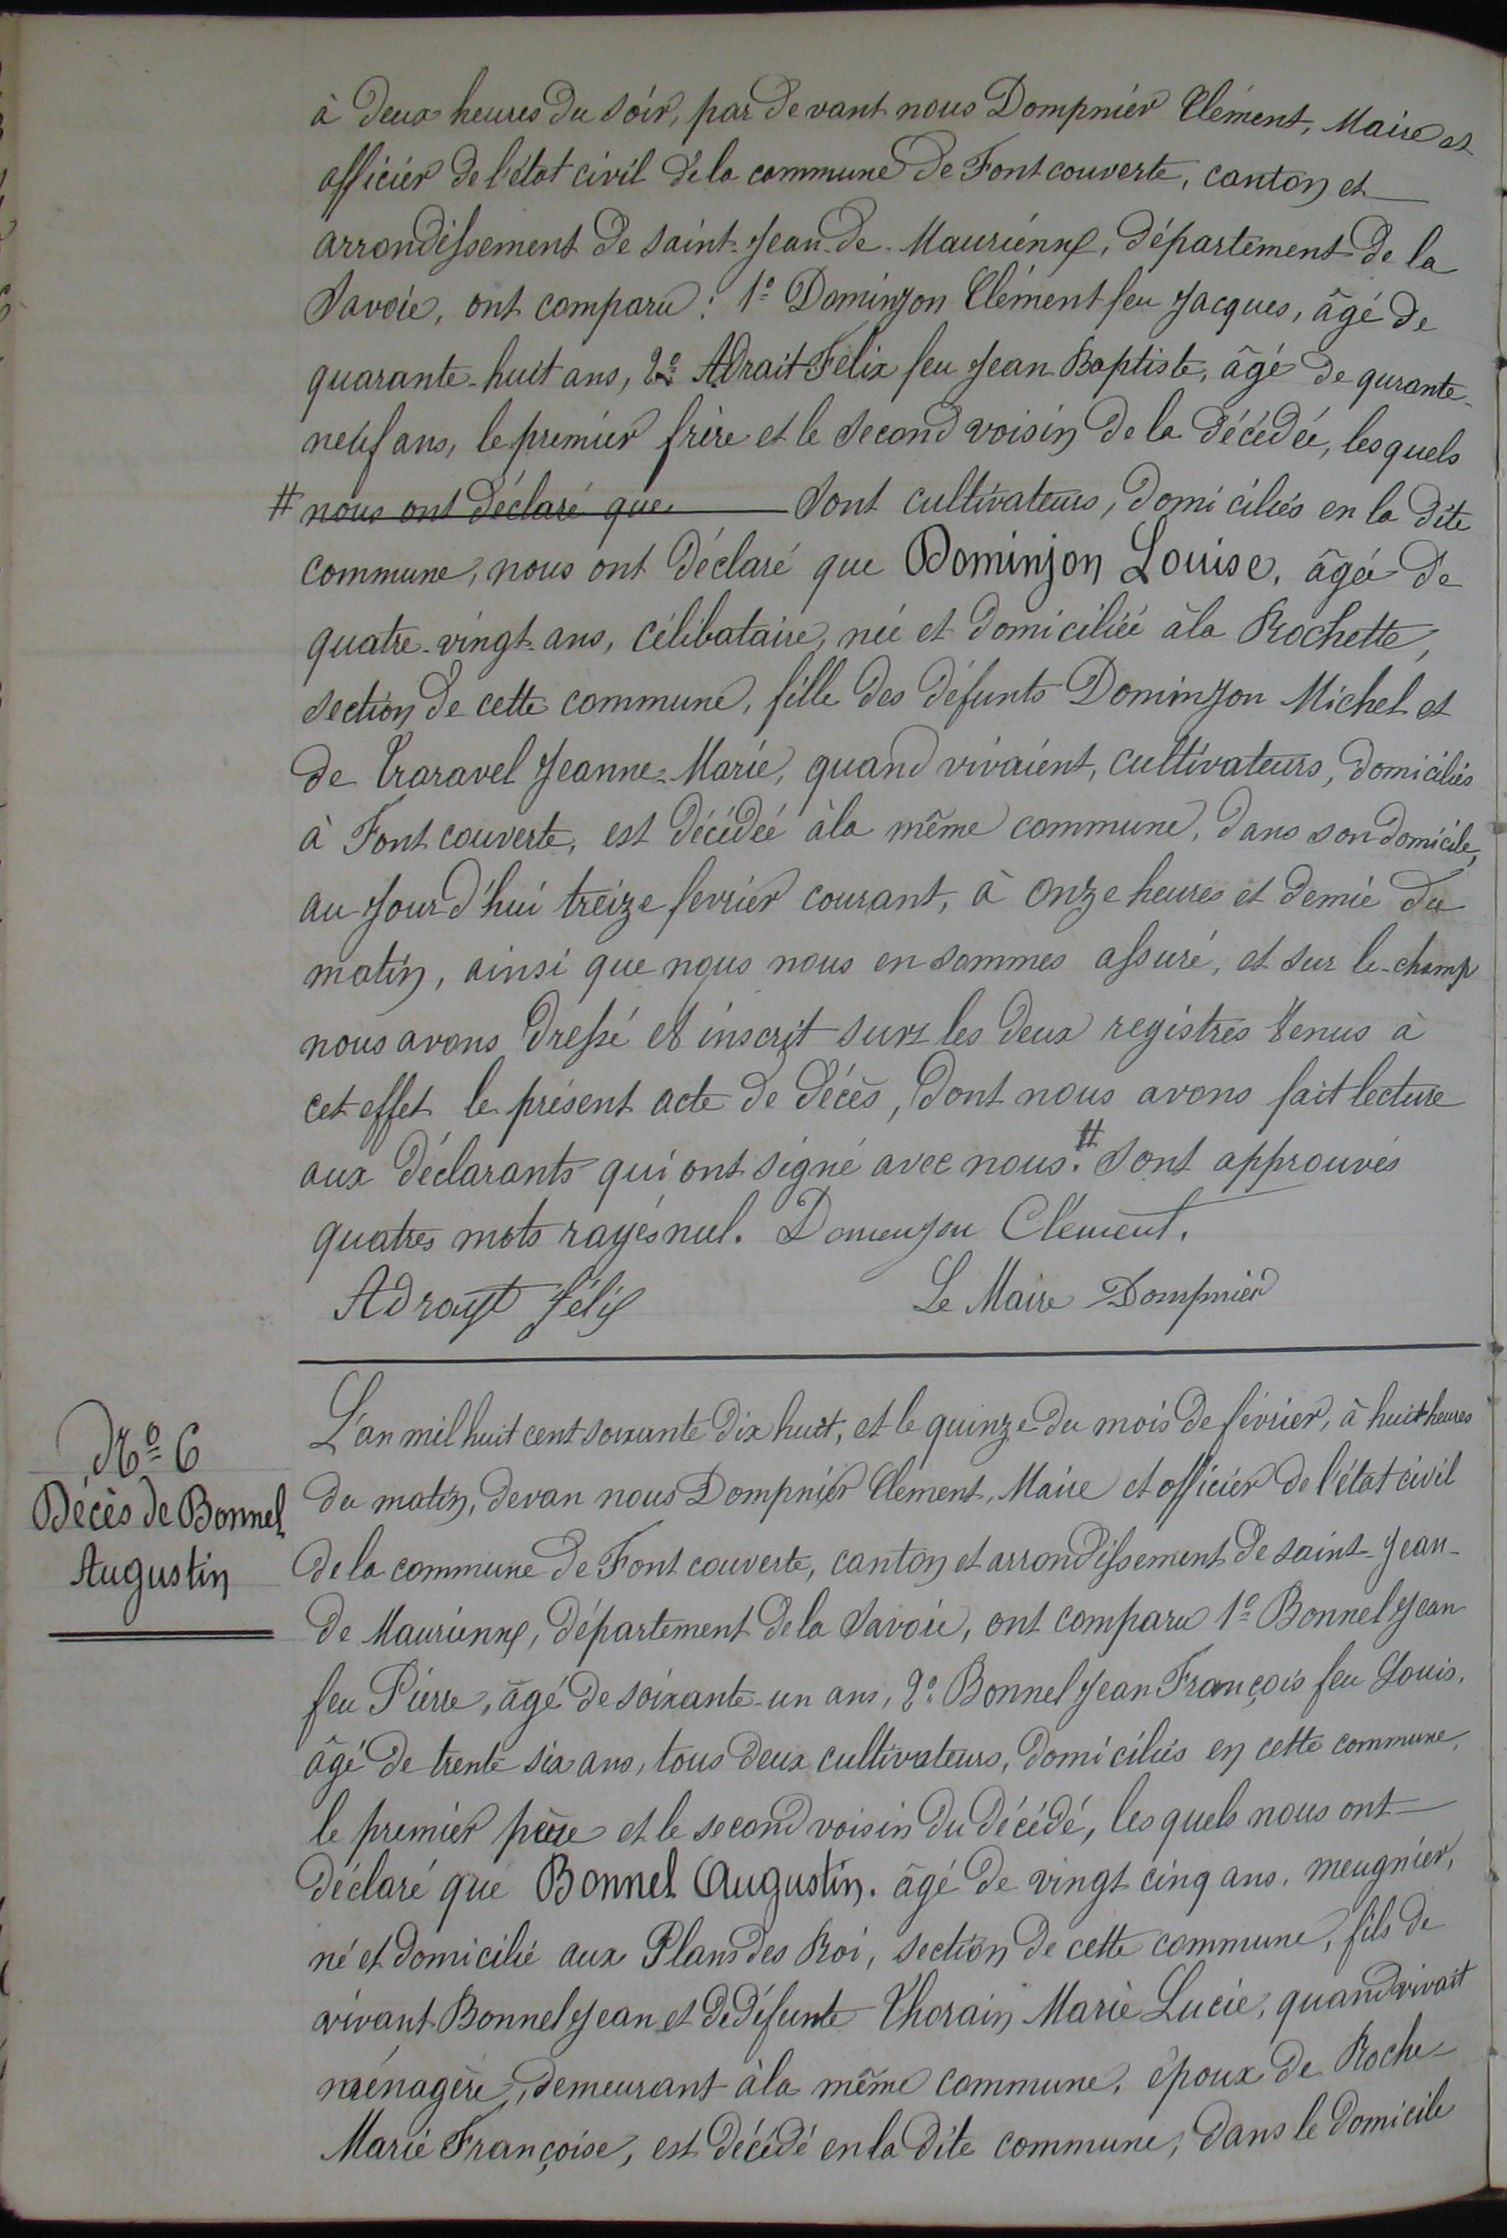 à deux heures du soir, par devant nous Dompnier Clément, Maire et
officier de l'état civil de la commune de Fontcouverte, canton et
arrondissement de saint-Jean-de-Maurienne, département de la
Savoie, ont comparu: 1º Dominjon Clément feu Jacques, âgé de
quarante-huit ans, 2º Adrait Félix feu Jean Baptiste, âgé de qurante-
neuf ans, le premier frère et le second voisin de la décédée, lesquels
# nous ont déclaré que sont cultivateurs, domiciliés en la dite
commune, nous ont déclaré que Dominjon Louise, âgée de
quatre-vingt-ans, célibataire, née et domiciliée à la Rochette,
section de cette commune, fille des défunts Dominjon Michel et
de Traravel Jeanne-Marie, quand vivaient, cultivateurs, domiciliés
à Fontcouverte, est décédée à la même commune, dans son domicile,
au jour d'hui treize fevrier courant, à onze heures et demie du
matin, ainsi que nous nous en sommes assuré, et sur le-champ
nous avons dressé et inscrit sur les deux registres tenus à
cet effet le présent acte de décès, dont nous avons fait lecture
aux déclarants qui ont signé avec nous. # Sont approuvés
quatres mots rayés nul. Domenjon Clément.
Adrayt Félix Le Maire Dompnier
Nº 6
Décès de Bonnel
Augustin
L'an mil huit cent soixante dix huit, et le quinze du mois de février, à huit heures
du matin, devan nous Dompnier Clément, Maire et officier de l'état civil
de la commune de Fontcouverte, canton et arrondissement de saint-Jean-
de Maurienne, département de la Savoie, ont comparu 1º Bonnel Jean
feu Pierre, âgé de soixante-un ans, 2º Bonnel Jean François feu Louis,
âgé de trente six ans, tous deux cultivateurs, domiciliés en cette commune,
le premier père et le second voisin du décédé, lesquels nous ont
déclaré que Bonnel Augustin, âgé de vingt cinq ans, meugnier,
né et domicilié aux Plans des Roi, section de cette commune, fils de
vivant Bonnel Jean et de défunte Thorain Marie Lucie, quand vivait
ménagère, demeurant à la même commune, époux de Roche
Marie Françoise, est décédé en la dite commune, dans le domicile